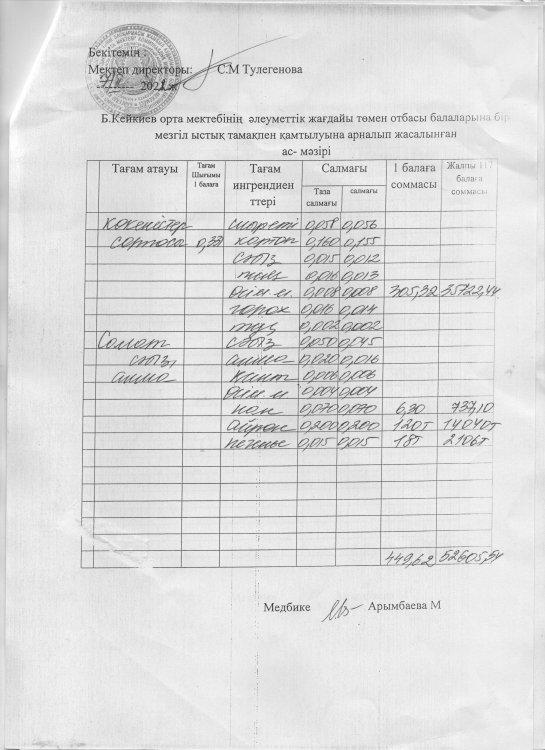 Бекітемін :
Мектеп директоры: С.М Тулегенова
Б.Кейкиев орта мектебінің әлеуметтік жағдайы төмен отбасы балаларына бір
мезгіл ыстық тамақпен қамтылуына арналып жасалынған
ас- мәзірі
Тағам атауы Тағам Шығымы 1 балаға Тағам ингрендиен ттері Салмағы 1 балаға соммасы Жалпы 117 балаға соммасы
Таза салмағы салмағы
көкөністер 0,058 0,056
сорпасы 0,33 картоп 0,160 0,155
сәбіз 0,015 0,012
пияз 0,016 0,013
өсім.м. 0,008 0,008 305,32 35722,44
горох 0,016 0,014
тұз 0,002 0,002
Салат сәбіз 0,050 0,045
сәбіз, алма 0,020 0,016
алма қант 0,006 0,006
өсім м 0,004 0,004
нан 0,070 0,070 6,30 737,10
айран 0,200 0,200 120т 14040т
печенье 0,015 0,015 18т 2106т
449,62 52605,54
Медбике Арымбаева М